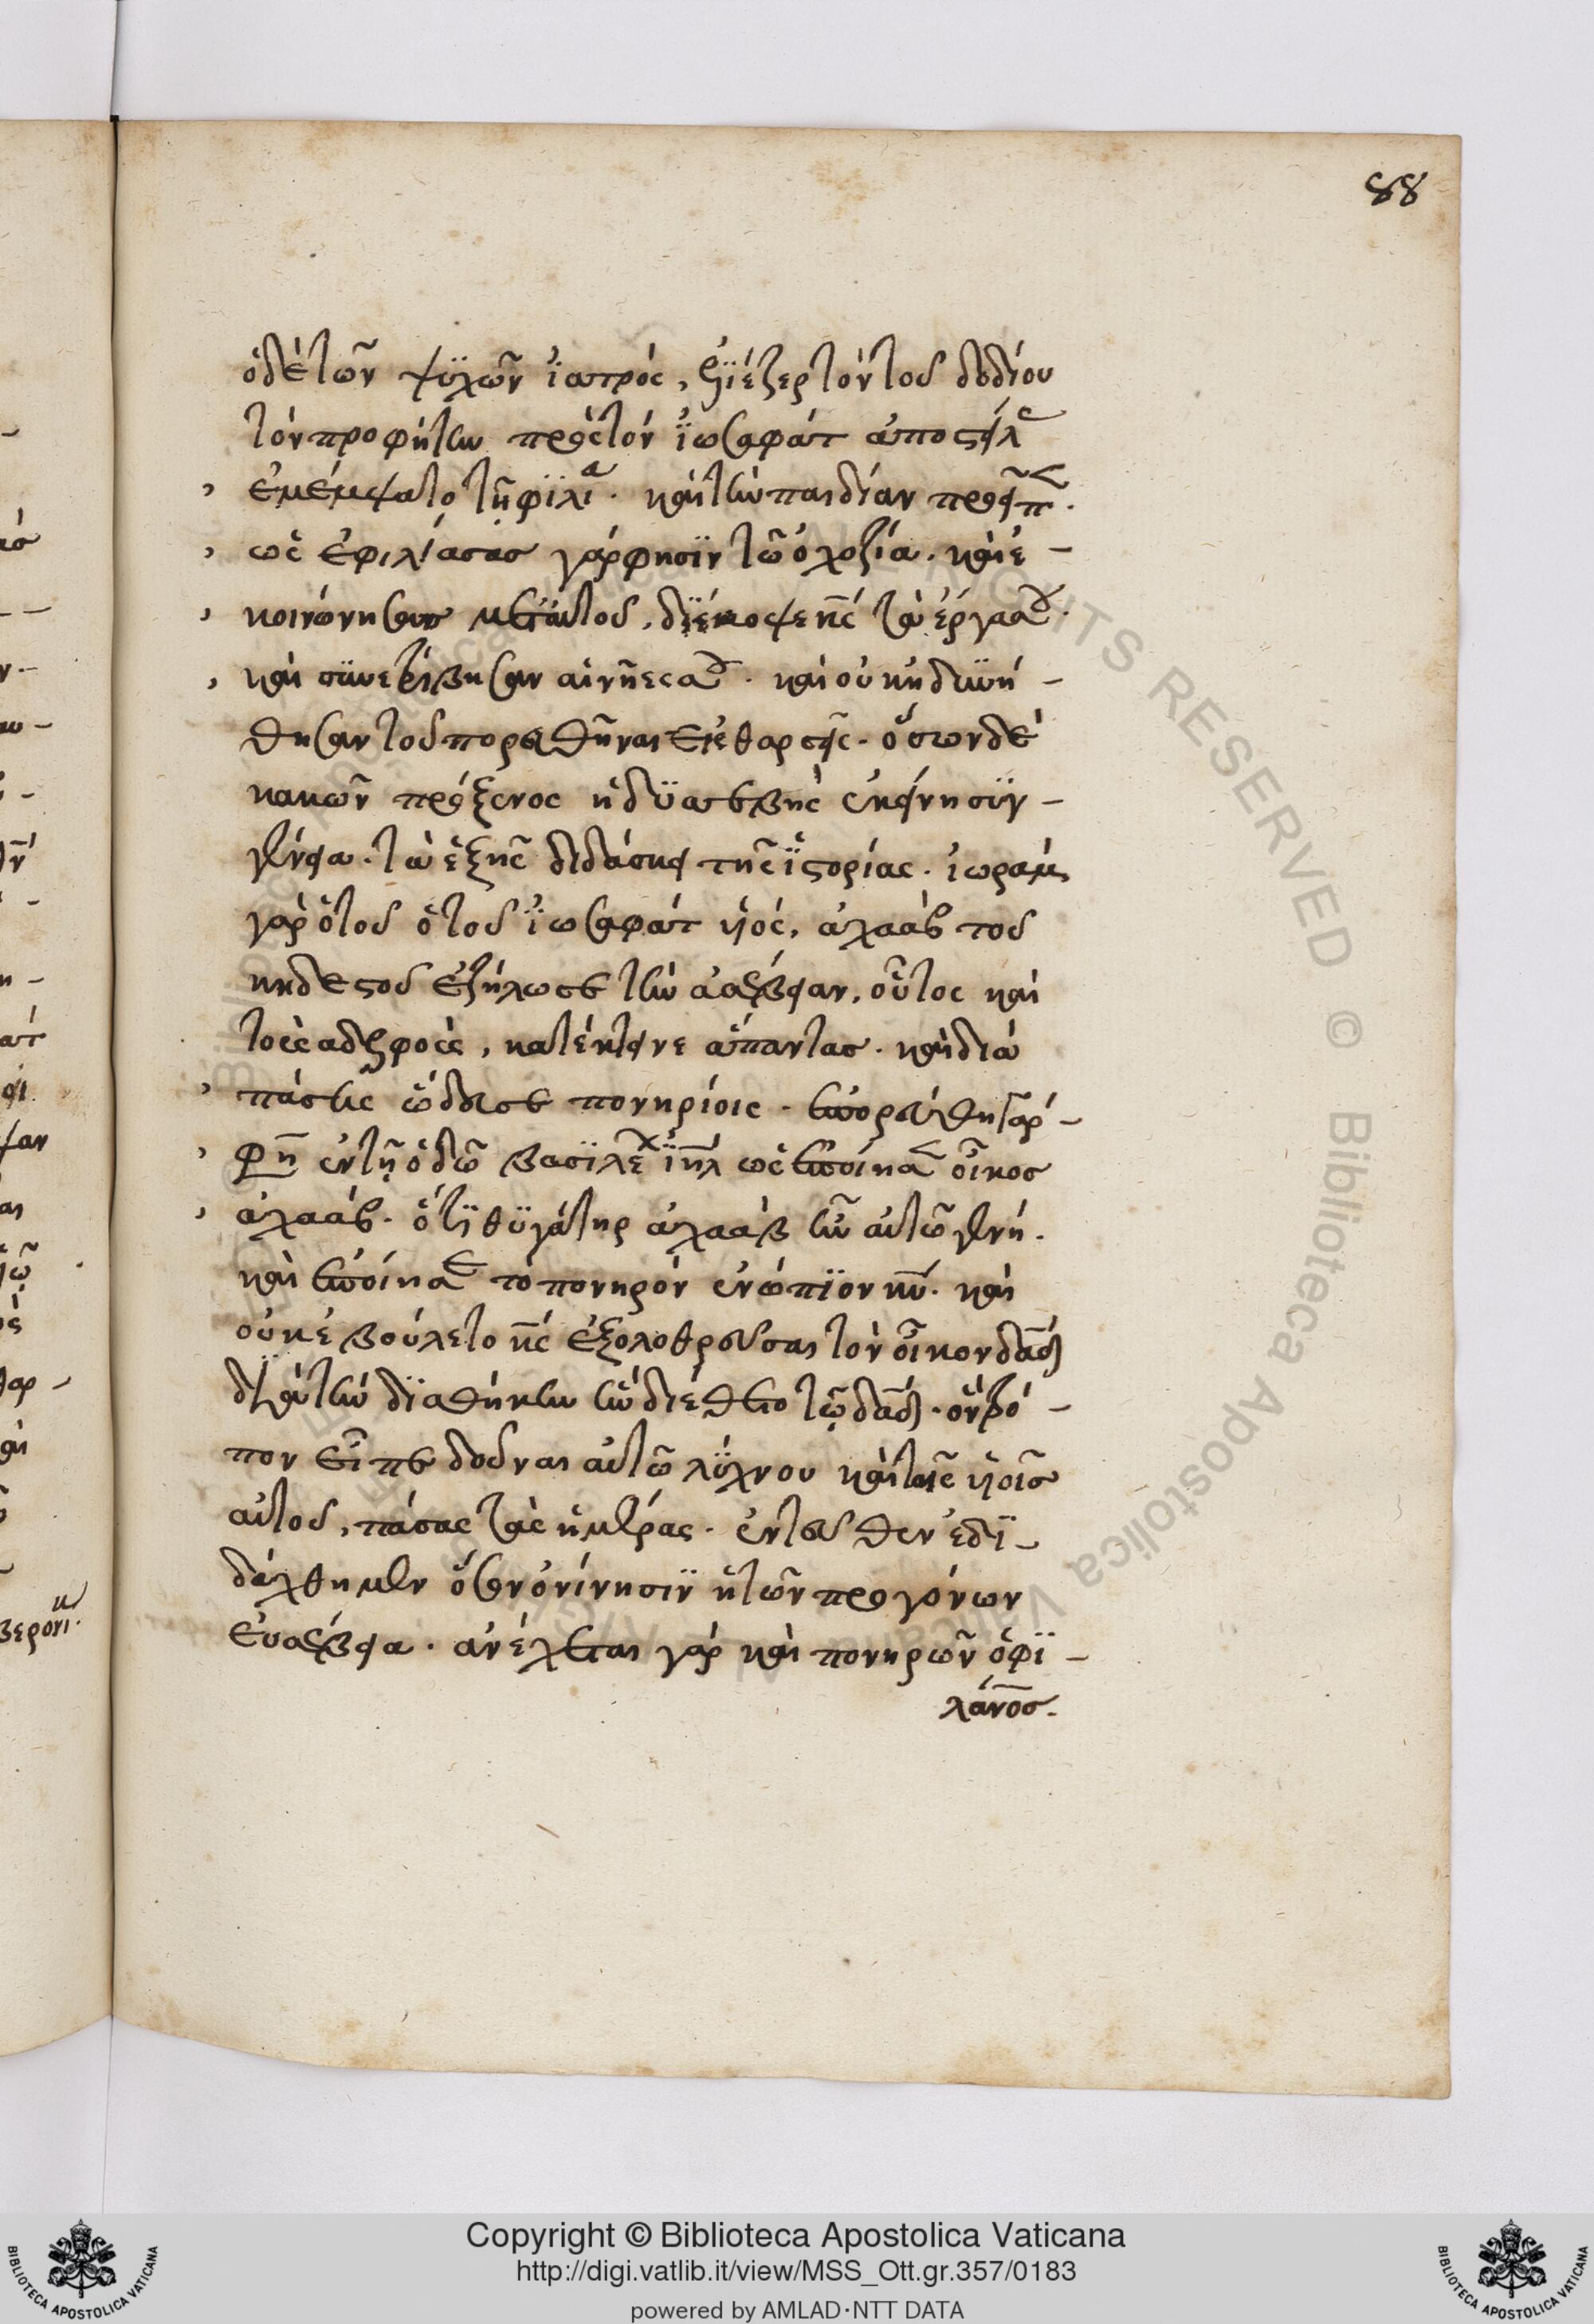 88
ὁ δὲ τῶν ψϋχῶν ἰ̈ατρός, ἐλϊέζερ τὸν τοῦ δουδίου
τὸν προφήτην πρὸς τὸν ἰ̈ωσαφὰτ ἀποστείλας
ἐμέμψατο τῇ φϊλία. καὶ τὴν παιδίαν προσεῖπεν.
ὡς ἐφιλίασας γάρ φησϊν τῶ ὀχοζία. καὶ ἐ-
κοινώνησας μετ' αὐτοῦ, δϊέκοψε κς τὰ ἔργα σου.
καὶ σϋνετρίβησαν αἱ νῆες σου. καὶ οὐκ ἠδϋνή-
θησαν τοῦ πορευθῆναι εἰς θαρσεῖς. ὅσων δὲ
κακῶν πρόξενος ἡ δϋσσεβὴς ἐκείνη σϋγ-
γένεια. τὰ ἑξῆς διδάσκει τῆς ἱ̈στορίας. ἰωρὰμ
γὰρ ὁ τοῦ ὁ τοῦ ἰ̈ωσαφὰτ ὑός, ἀχαὰβ τοῦ
κηδεστοῦ ἐζήλωσε τὴν ἀσέβειαν, οὗτος καὶ
τοὺς ἀδελφοὺς, κατέκτεινε ἅπαντας. καὶ διὰ
πάσης ὥδευσε πονηρίοις. ἐπορεύθη γάρ
φη ἐν τῇ ὁδῶ βασϊλέων ἰηλ ὡς ἐποίησεν οἶκος
ἀχαάβ. ὅτϊ θϋγάτηρ ἀχαὰβ ἦν αὐτῶ γυνή.
καὶ ἐποίησε τὸ πονηρὸν ἐνώπϊον κυ. καὶ
οὐκ ἐβούλετο κς ἐξολοθρεῦσαι τὸν οἶκον δαδ
διὰ τὴν δϊαθήκην ἣν διέθετο τῷ δαδ. ὃν τρό-
πον εἶπε δοῦναι αὐτῶ λύχνον καὶ τοῖς ὑοῖς
αὐτοῦ, πάσας τὰς ἡμέρας. ἐντεῦθεν ἐδϊ-
δάχθημεν ὅσον ὀνίνησϊν ἡ τῶν προγόνων
εὐσέβεια. ἀνέχεται γὰρ καὶ πονηρῶν ὁ φϊ-
λάνος.
Copyright © Biblioteca Apostolica Vaticana
http://digi.vatlib.it/view/MSS_Ott.gr.357/0183
powered by AMLAD·NTT DATA
BIBLIOTECA APOSTOLICA VATICANA
BIBLIOTECA APOSTOLICA VATICANA